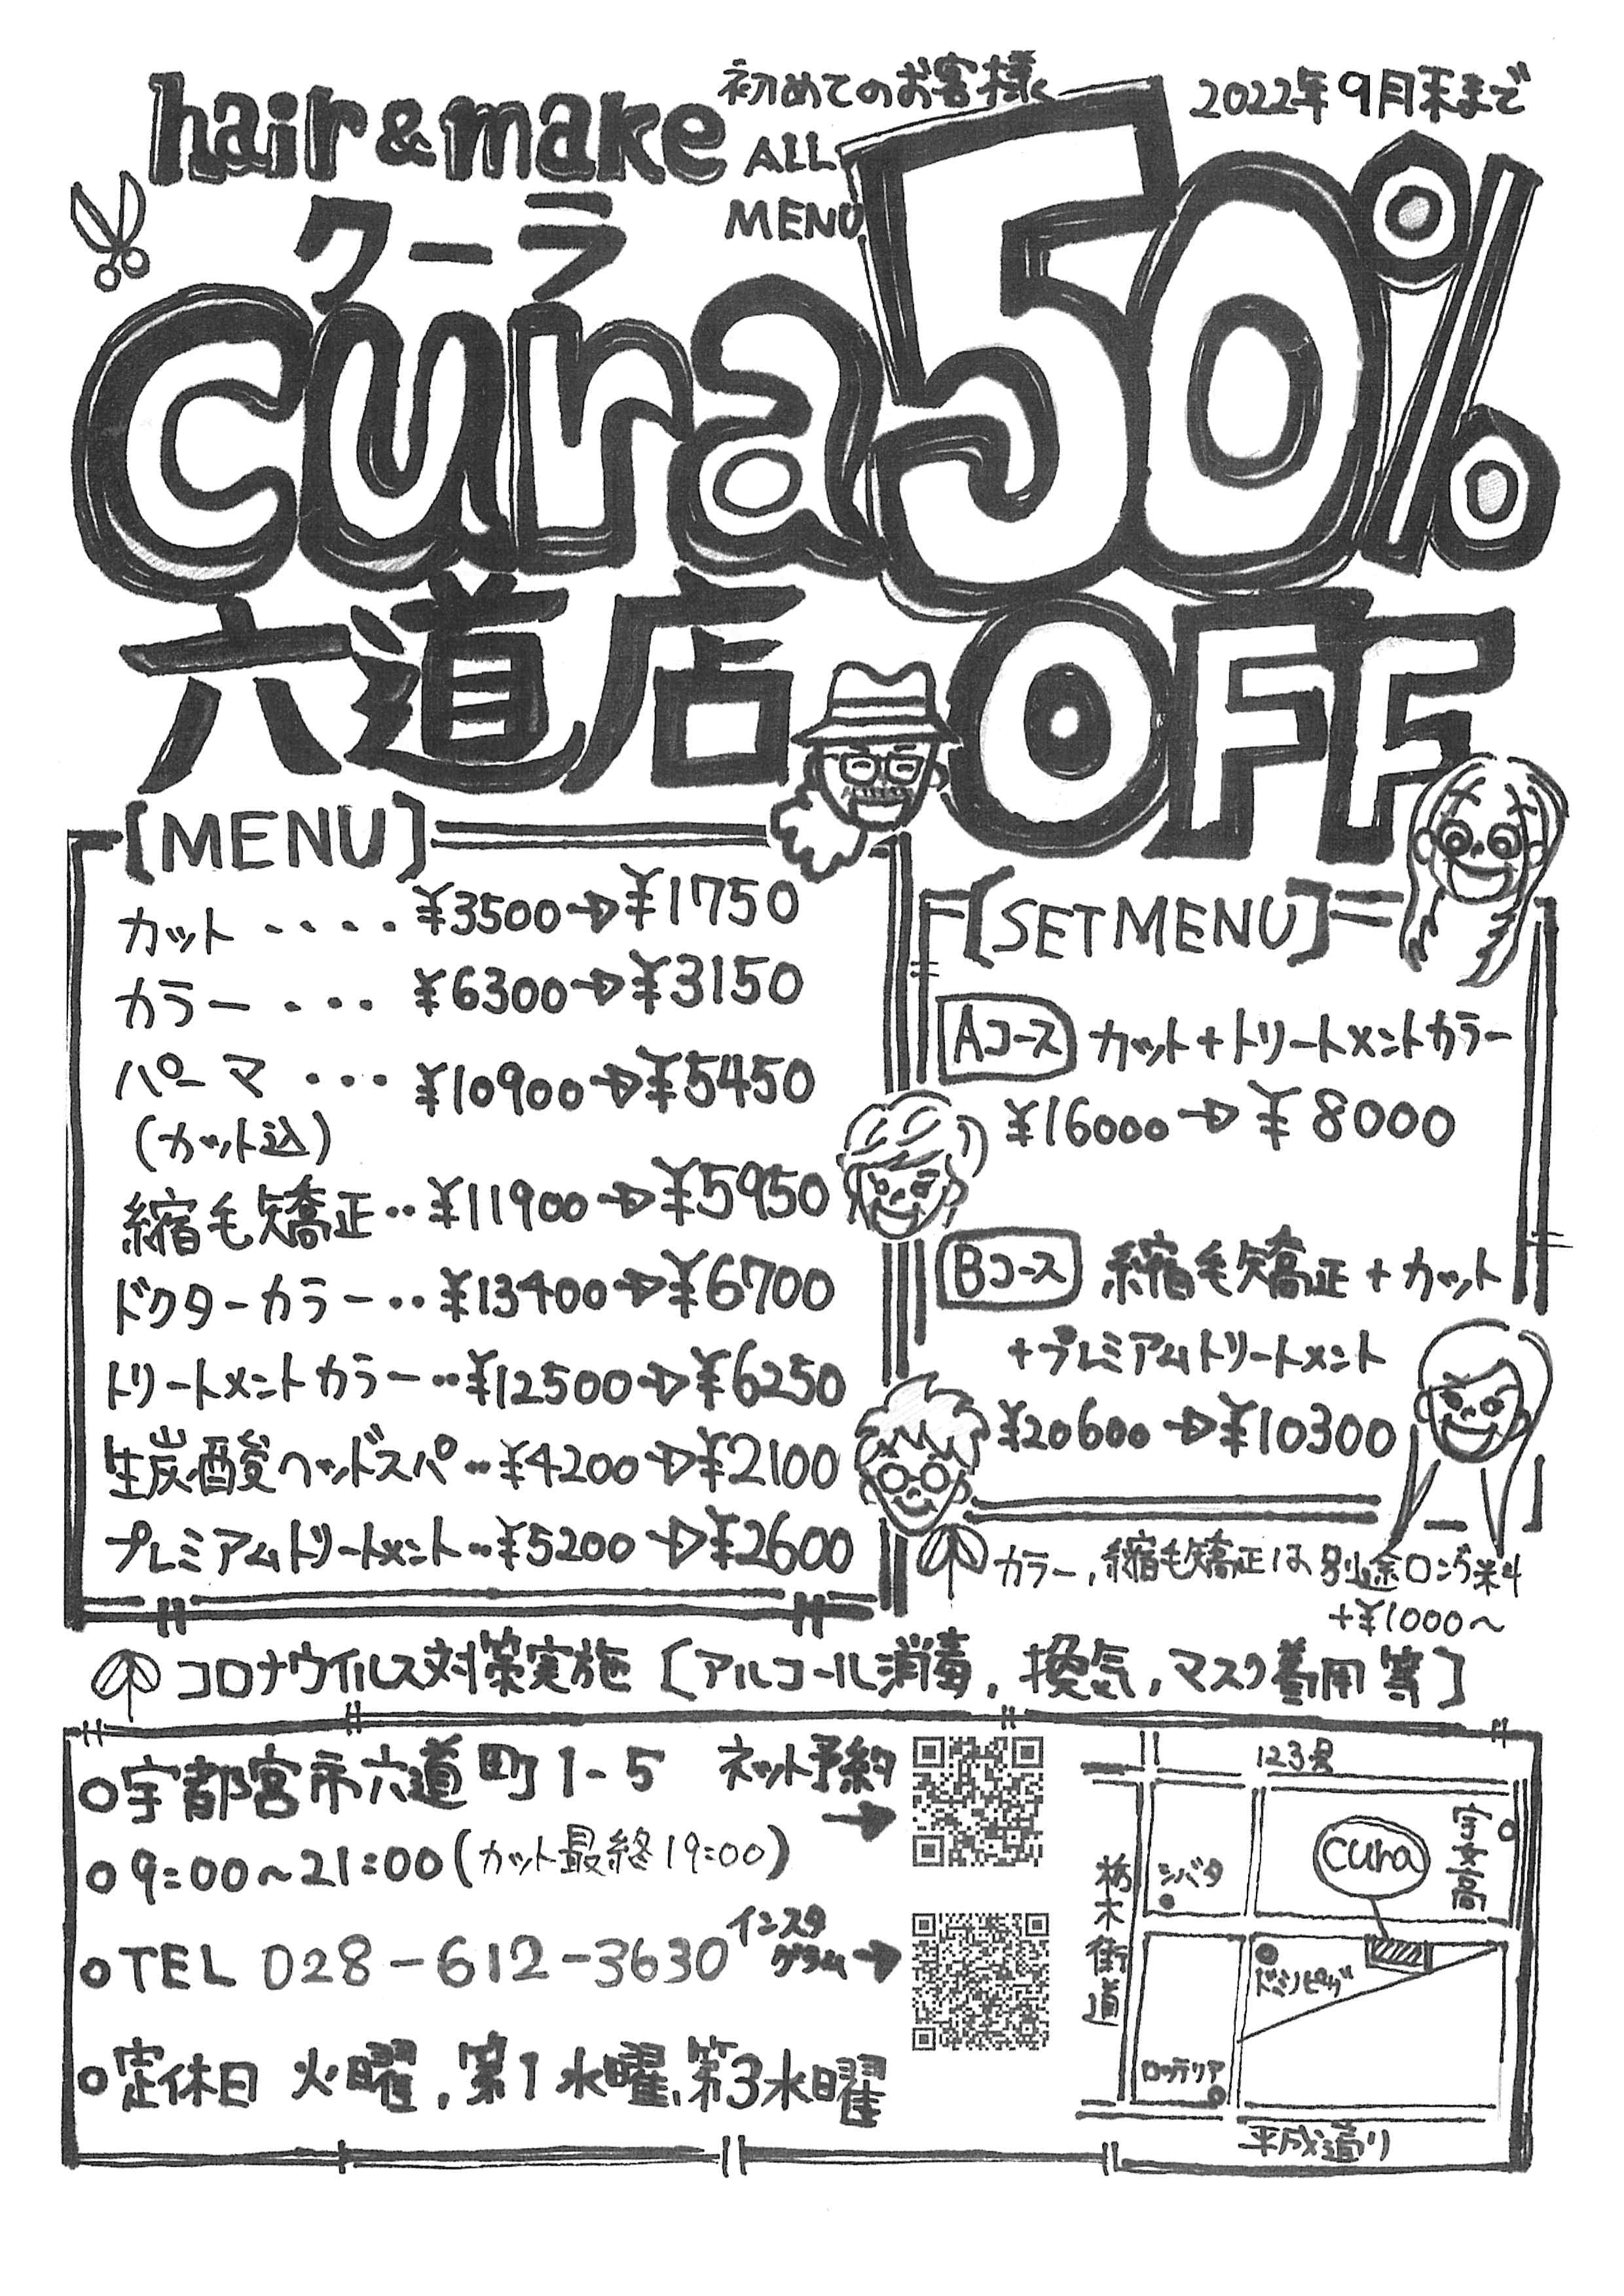 hair & make
クーラ
cura
六道店
初めてのお客様
ALL
MENU
2022年9月末まで
50%
OFF
[MENU]
カット ‥‥ ¥3500→¥1750
カラー ・・・ ¥6300→¥3150
パーマ ・・・ ¥10900→¥5450
(カット込)
縮毛矯正‥¥11900→¥5950
ドクターカラー‥¥13400→¥6700
トリートメントカラー‥¥12500→¥6250
生炭酸ヘッドスパ‥¥4200→¥2100
プレミアムトリートメント‥¥5200→¥2600
[SET MENU]
Aコース カット+トリートメントカラー
¥16000→¥8000
Bコース 縮毛矯正+カット
+プレミアムトリートメント
¥20600→¥10300
カラー,縮毛矯正は別途ロング料
+¥1000〜
コロナウイルス対策実施 [アルコール消毒,換気,マスク着用等]
○宇都宮市六道町1-5
○9:00〜21:00(カット最終19:00)
○TEL 028-612-3630
○定休日 火曜,第1水曜,第3水曜
ネット予約
→
インスタ
グラム→
123号
宇女高
cura
シバタ
栃木街道
ドミノピザ
ロッテリア
平成通り